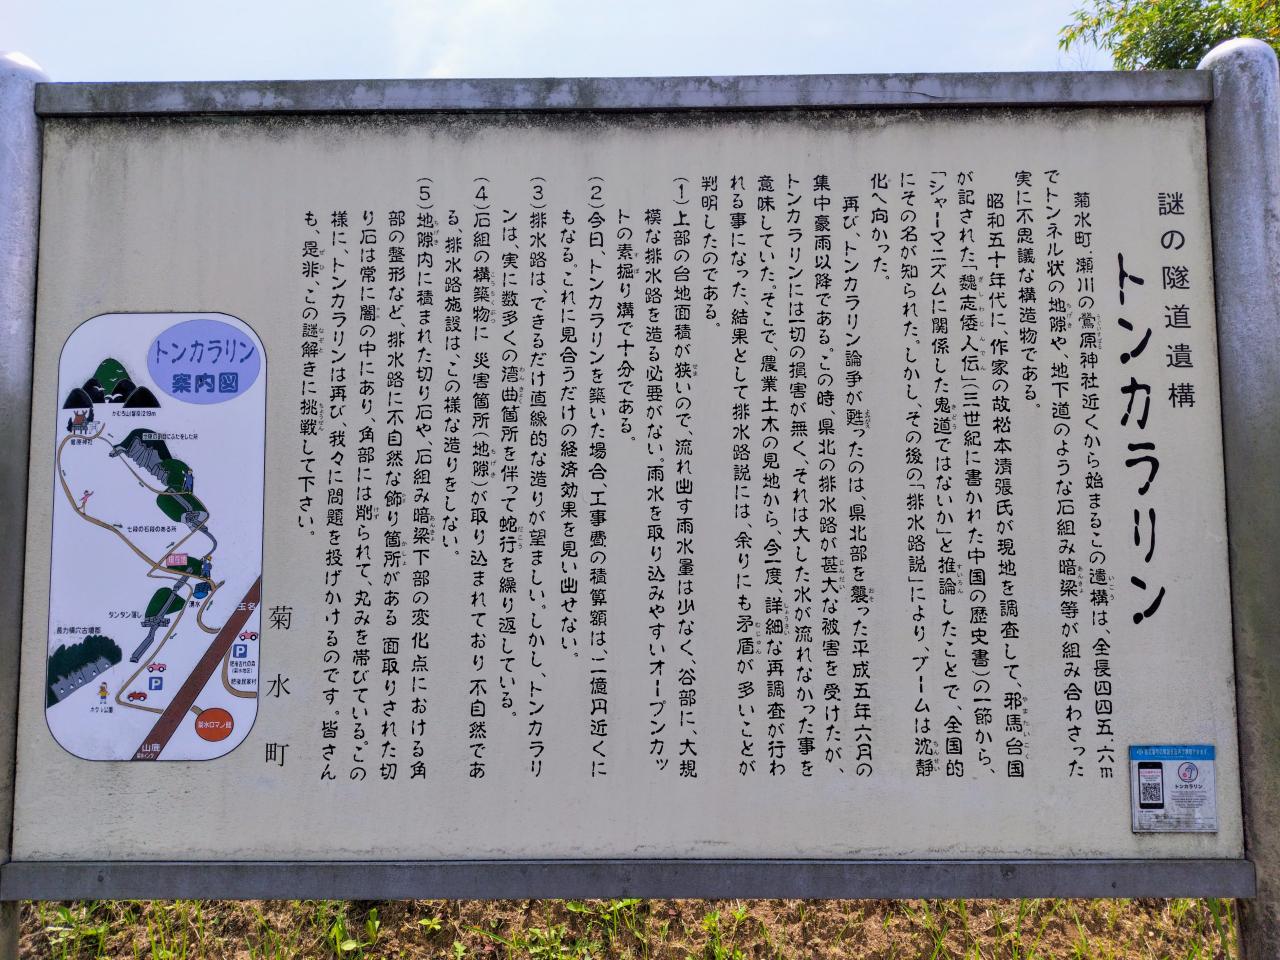 謎の隧道遺構
トンカラリン
菊水町 瀬川の鶯原神社近くから始まるこの遺構は、全長四四五.六m
でトンネル状の地隙や、地下道のような石組み暗梁等が組み合わさった
実に不思議な構造物である。
昭和五十年代に、作家の故松本清張氏が現地を調査して、邪馬台国
が記された「魏志倭人伝」(三世紀に書かれた中国の歴史書)の一節から、
「シャーマニズムに関係した鬼道ではないか」と推論したことで、全国的
にその名が知られた。しかし、その後の「排水路説」により、ブームは沈静
化へ向かった。
再び、トンカラリン論争が甦ったのは、県北部を襲った平成五年六月の
集中豪雨以降である。この時、県北の排水路が甚大な被害を受けたが、
トンカラリンには一切の損害が無く、それは大した水が流れなかった事を
意味していた。そこで、農業土木の見地から、今一度、詳細な再調査が行わ
れる事になった、結果として排水路説には、余りにも矛盾が多いことが
判明したのである。
(1)上部の台地面積が狭いので、流れ出す雨水量は少なく、谷部に、大規
模な排水路を造る必要がない。雨水を取り込みやすいオープンカッ
トの素掘り溝で十分である。
(2)今日、トンカラリンを築いた場合、工事費の積算額は、二億円近くに
もなる。これに見合うだけの経済効果を見い出せない。
(3)排水路は、できるだけ直線的な造りが望ましい。しかし、トンカラリ
ンは、実に数多くの湾曲箇所を伴って蛇行を繰り返している。
(4)石組の構築物に 災害箇所(地隙)が取り込まれており 不自然であ
る、排水路施設は、この様な造りをしない。
(5)地隙内に積まれた切り石や、石組み暗梁下部の変化点における角
部の整形など、排水路に不自然な飾り箇所がある 面取りされた切
り石は常に闇の中にあり、角部には削られて、丸みを帯びている。この
様に、トンカラリンは再び、我々に問題を投げかけるのです。皆さん
も、是非、この謎解きに挑戦して下さい。
菊水町
トンカラリン
案内図
かむろ山(督原)219m
鶯原神社
七段の石段のある所
湧水
タンタン落し
長力横穴古墳群
ホタル公園
玉名
P
P
肥後古代の森
(菊水地区)
肥後民家村
菊水ロマン館
山鹿
菊水インター
トンカラリン